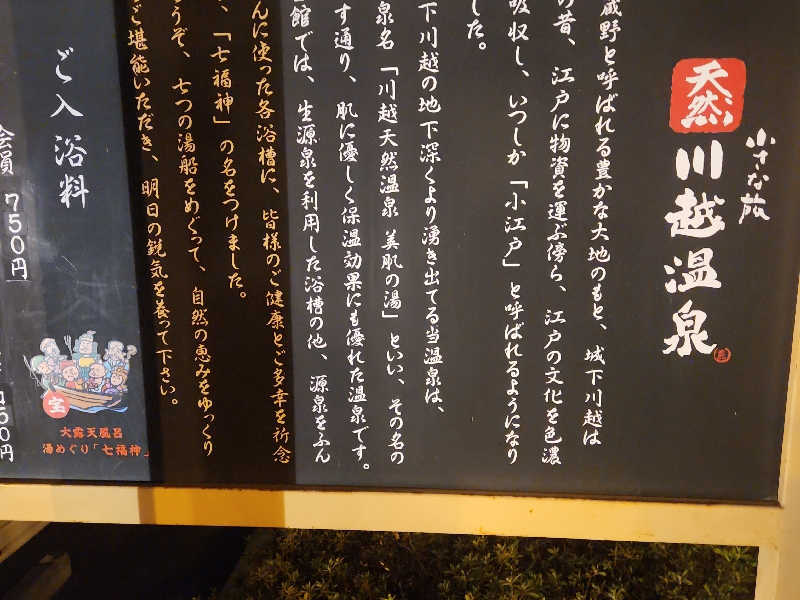 小さな旅
天然
川越温泉
蔵野と呼ばれる豊かな大地のもと、城下川越は
の昔、江戸に物資を運ぶ傍ら、江戸の文化を色濃
吸収し、いつしか「小江戸」と呼ばれるようになり
した。
下川越の地下深くより湧き出てる当温泉は、
泉名「川越天然温泉 美肌の湯」といい、その名の
す通り、肌に優しく保温効果にも優れた温泉です。
館では、生源泉を利用した浴槽の他、源泉をふん
んに使った各浴槽に、皆様のご健康とご多幸を祈念
、「七福神」の名をつけました。
うぞ、七つの湯船をめぐって、自然の恵みをゆっくり
ご堪能いただき、明日の鋭気を養って下さい。
ご入浴料
会員 750円
50円
宝
大露天風呂
湯めぐり「七福神」